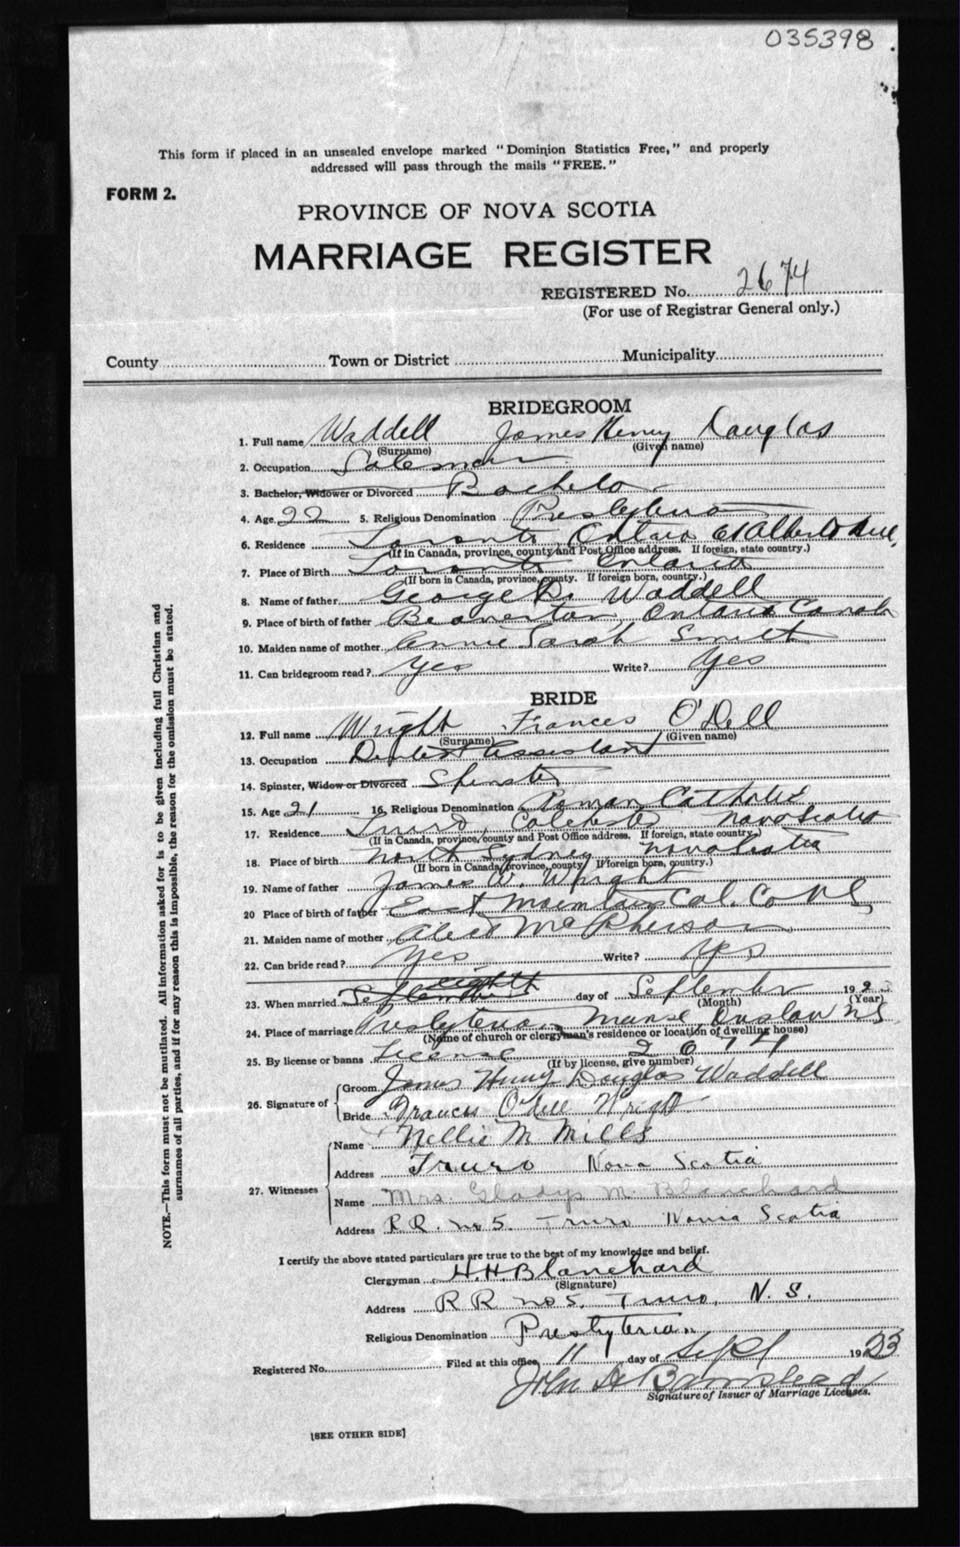 035398
This form if placed in an unsealed envelope marked "Dominion Statistics Free," and properly
addressed will pass through the mails "FREE."
FORM 2.
PROVINCE OF NOVA SCOTIA
MARRIAGE REGISTER
REGISTERED No. 2674
(For use of Registrar General only.)
County Town or District Municipality
BRIDEGROOM
1. Full name Waddell James Henry Douglas
(Surname) (Given name)
2. Occupation Salesman
3. Bachelor, Widower or Divorced Bachelor
4. Age 22 5. Religious Denomination Presbyterian
6. Residence Toronto Ontario Albert Ave,
(If in Canada, province, county and Post Office address. If foreign, state country.)
7. Place of Birth Toronto Ontario
(If born in Canada, province, county. If foreign born, country.)
8. Name of father George Waddell
9. Place of birth of father Beaverton Ontario Canada
10. Maiden name of mother Annie Sarah Smith
11. Can bridegroom read? Yes Write? Yes
BRIDE
12. Full name Wright Frances O'Dell
(Surname) (Given name)
13. Occupation Dentist Assistant
14. Spinster, Widow or Divorced Spinster
15. Age 21 16. Religious Denomination Roman Catholic
17. Residence Truro, Colchester Nova Scotia
(If in Canada, province, county and Post Office address. If foreign, state country.)
18. Place of birth North Sydney Nova Scotia
(If born in Canada, province, county. If foreign born, country.)
19. Name of father James W. Wright
20 Place of birth of father East Mountain Col. Co N S
21. Maiden name of mother McPherson
22. Can bride read? Yes Write? Yes
23. When married eighth September day of September 192
(Month) (Year)
24. Place of marriage Presbyterian Manse Onslow N S
(Name of church or clergyman's residence or location of dwelling house)
25. By license or banns License 2674
(If by license, give number)
26. Signature of Groom James Henry Douglas Waddell
Bride Frances O'dell Wright
27. Witnesses Name Nellie M Mills
Address Truro Nova Scotia
Name Mrs. Gladys M. Blanchard
Address R.R. no 5. Truro Nova Scotia
I certify the above stated particulars are true to the best of my knowledge and belief.
Clergyman H.H. Blanchard
(Signature)
Address R R no 5. Truro, N. S.
Religious Denomination Presbyterian
Registered No. Filed at this office 11 day of Sept 1923
John Barnstead
Signature of Issuer of Marriage Licenses.
[SEE OTHER SIDE]
NOTE.—This form must not be mutilated. All information asked for is to be given including full Christian and
surnames of all parties, and if for any reason this is impossible, the reason for the omission must be stated.